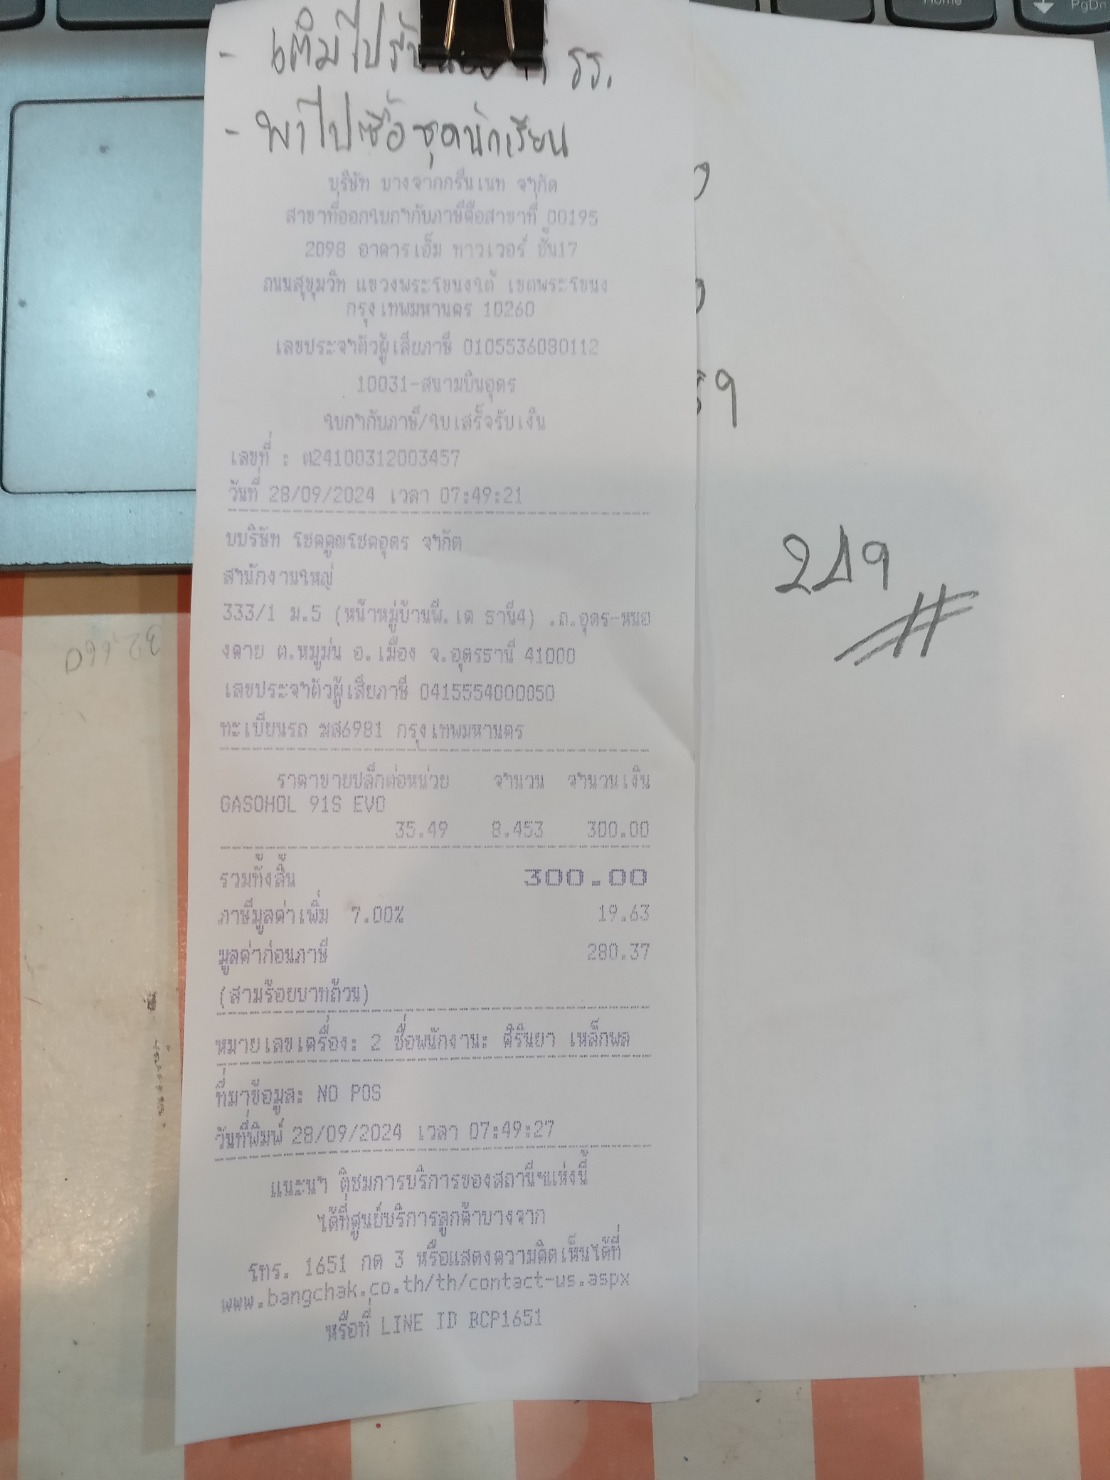 - เติมไปรับ รร.
- พาไปซื้อชุดนักเรียน
บริษัท บางจากกรีนเนท จำกัด
สาขาที่ออกใบกำกับภาษีคือสาขาที่ 00195
2098 อาคารเอ็ม ทาวเวอร์ ชั้น17
ถนนสุขุมวิท แขวงพระโขนงใต้ เขตพระโขนง
กรุงเทพมหานคร 10260
เลขประจำตัวผู้เสียภาษี 0105536080112
10031-สนามบินอุดร
ใบกำกับภาษี/ใบเสร็จรับเงิน
เลขที่ : ต24100312003457
วันที่ 28/09/2024 เวลา 07:49:21
บบริษัท โชคคูณโชคอุดร จำกัด
สำนักงานใหญ่
333/1 ม.5 (หน้าหมู่บ้านพี.เค ธานี4) .ถ.อุดร-หนอ
งคาย ต.หมูม่น อ.เมือง จ.อุดรธานี 41000
เลขประจำตัวผู้เสียภาษี 0415554000050
ทะเบียนรถ ฆส6981 กรุงเทพมหานคร
ราคาขายปลีกต่อหน่วย จำนวน จำนวนเงิน
GASOHOL 91S EVO
35.49 8.453 300.00
รวมทั้งสิ้น 300.00
ภาษีมูลค่าเพิ่ม 7.00% 19.63
มูลค่าก่อนภาษี 280.37
(สามร้อยบาทถ้วน)
หมายเลขเครื่อง: 2 ชื่อพนักงาน: ศิรินยา เหล็กพล
ที่มาข้อมูล: NO POS
วันที่พิมพ์ 28/09/2024 เวลา 07:49:27
แนะนำ ติชมการบริการของสถานีฯแห่งนี้
ได้ที่ศูนย์บริการลูกค้าบางจาก
โทร. 1651 กด 3 หรือแสดงความคิดเห็นได้ที่
www.bangchak.co.th/th/contact-us.aspx
หรือที่ LINE ID BCP1651
249
32,660
Home
PgDn